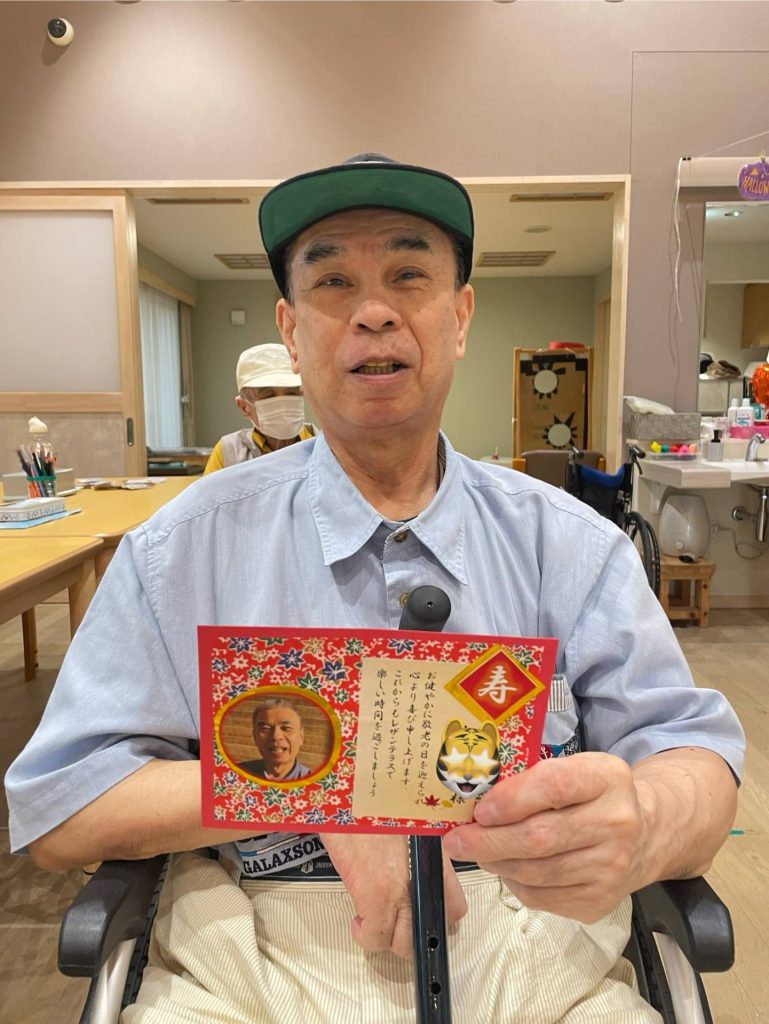 HALLOW
寿
お健やかに敬老の日を迎えられ
心より喜び申し上げます
これからもレザンテラスで
楽しい時間を過ごしましょう
様
GALAXSON